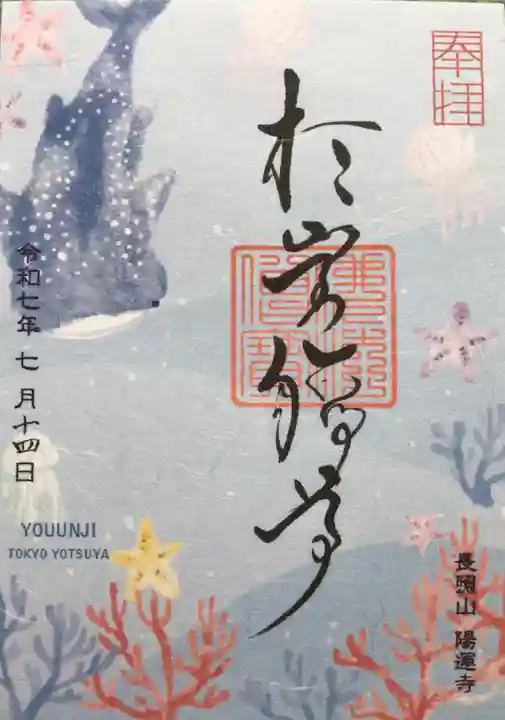 奉拝
於岩稲荷
令和七年 七月十四日
YOUUNJI
TOKYO YOTSUYA
長照山 陽運寺